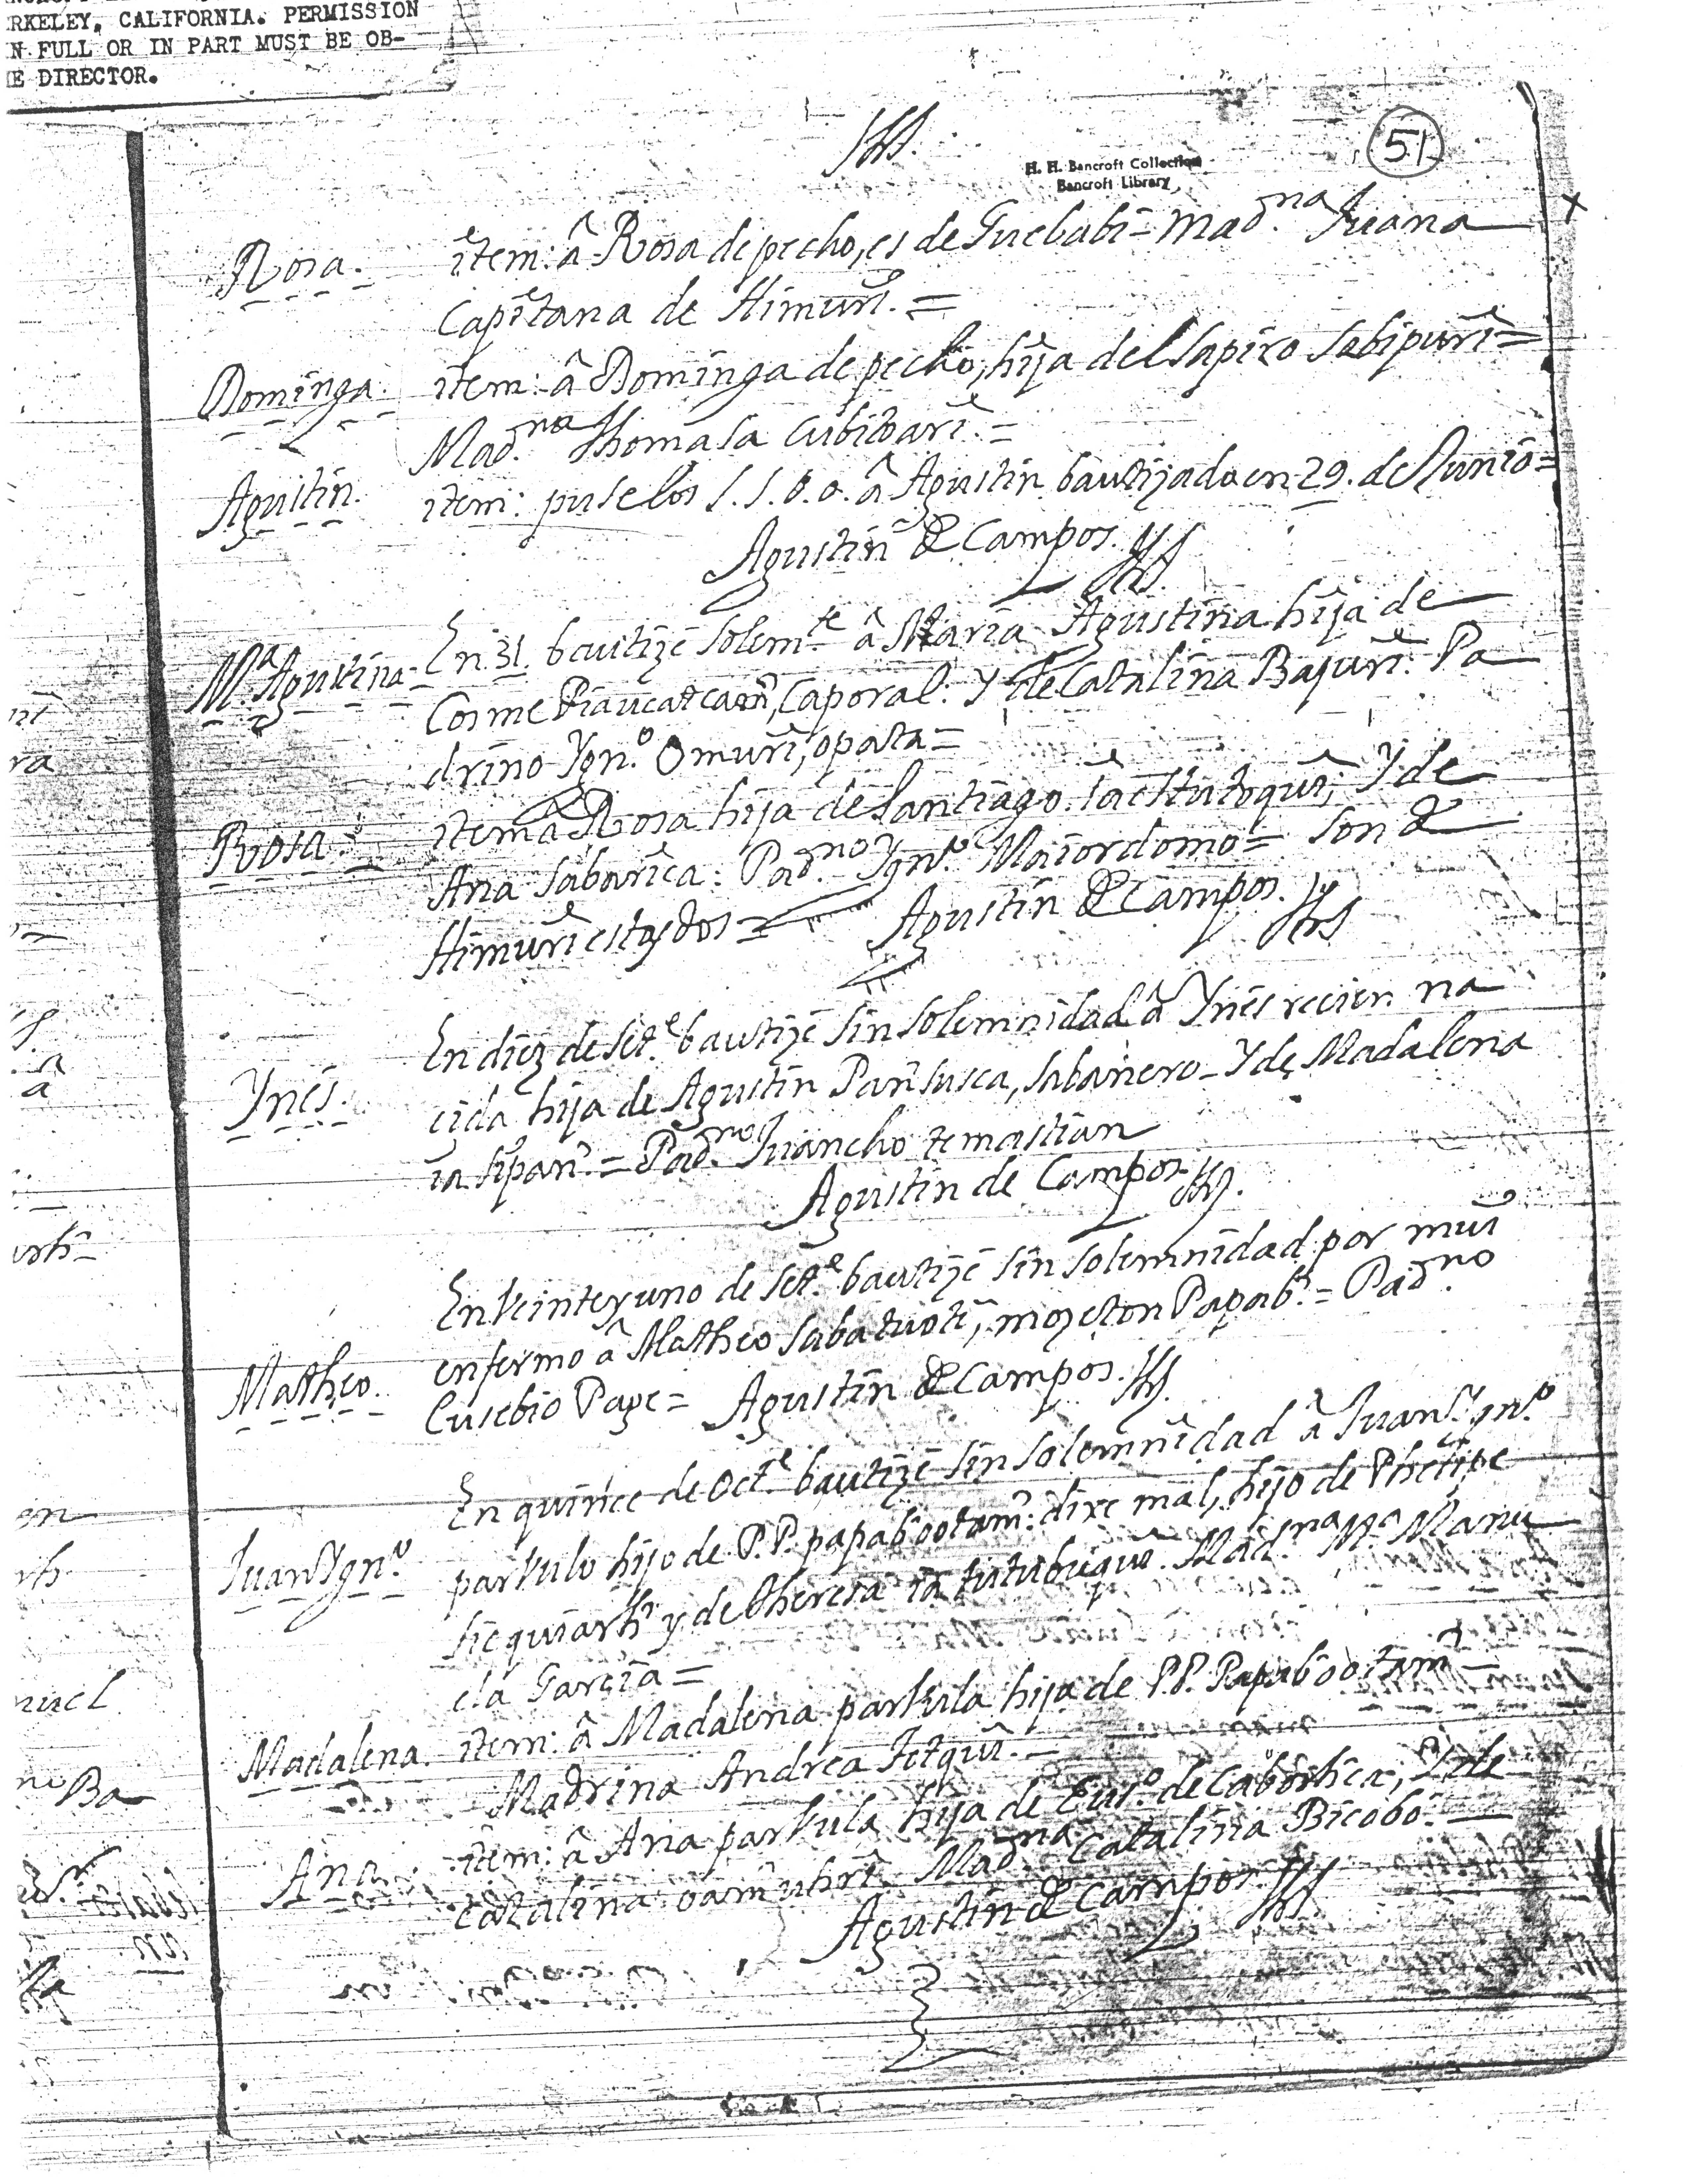 RKELEY, CALIFORNIA. PERMISSION
N FULL OR IN PART MUST BE OB-
E DIRECTOR.
51
H. H. Bancroft Collection
Bancroft Library
JHS.
Rosa. item: â Rosa de pecho, es de Guebabi = Mad.na Juana
Capitana de Himuri. =
Dominga. item: â Dominga de pecho, hija del Sapiro Sabipuri =
Mad.na Thomasa Cubitoari. =
Agustin. item: puse los S.S.O.O. â Agustin bautizado en 29. de Junio =
Agustin de Campos. JHS
Ma. Agustina. En 31. bautizé solem.te â Maria Agustina hija de
Cosme Piaucatcam, Caporal. Y de Catalina Bajuri. Pa
drino Ygn.o Omuri, opata =
Rosa. item â Rosa hija de Santiago Y de
Ana Sabarica. Pad.no Ygn.o Maiordomo = son de
Himuri estas dos = Agustin de Campos. JHS
En diez de Set.e bautizé sin solemnidad â Ynés recien na
Ynés. cida hija de Agustin Pansusca, Sabanero - Y de Madalena
ia Sipan. = Pad.no Juancho temastian
Agustin de Campos. JHS.
En Veinte y uno de Set.e bautizé sin solemnidad por mui
Matheo. enfermo â Matheo Sabatuoti, mozeton Papab. = Pad.no
Eusebio Page = Agustin de Campos. JHS.
En quince de Oct.e bautizé sin solemnidad â Juan Ygn.o
Juan Ygn.o parvulo hijo de P.P. papabootam: dixe mal, hijo de Phelipe
Sicquiarh y de Theresa ia tutubuqui. Mad.na Ma. Manu
ela Garcia =
Madalena. item: â Madalena parvula hija de P.P. Papabootam
Madrina Andrea Jetqui. -
Ana. item: â Ana parvula hija de Eus.o de Cabortica, Y de
Catalina oamuhri. Mad.na Catalina Bicobo. -
Agustin de Campos. JHS